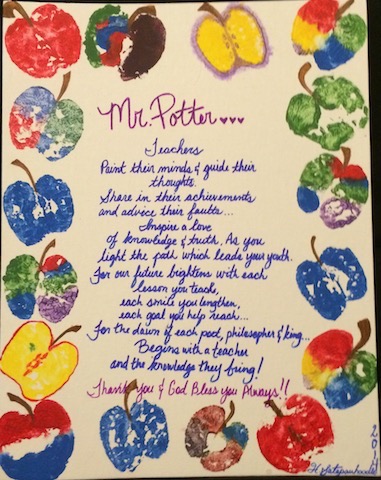 Mr. Potter ♥♥♥
Teachers
Paint their minds & guide their
thoughts.
Share in their achievements
and advice their faults...
Inspire a love
of knowledge & truth. As you
light the path which leads your youth.
For our future brightens with each
lesson you teach,
each smile you lengthen,
each goal you help reach...
For the dawn of each poet, philosopher & king...
Begins with a teacher
and the knowledge they bring!
Thank You & God Bless You Always!!